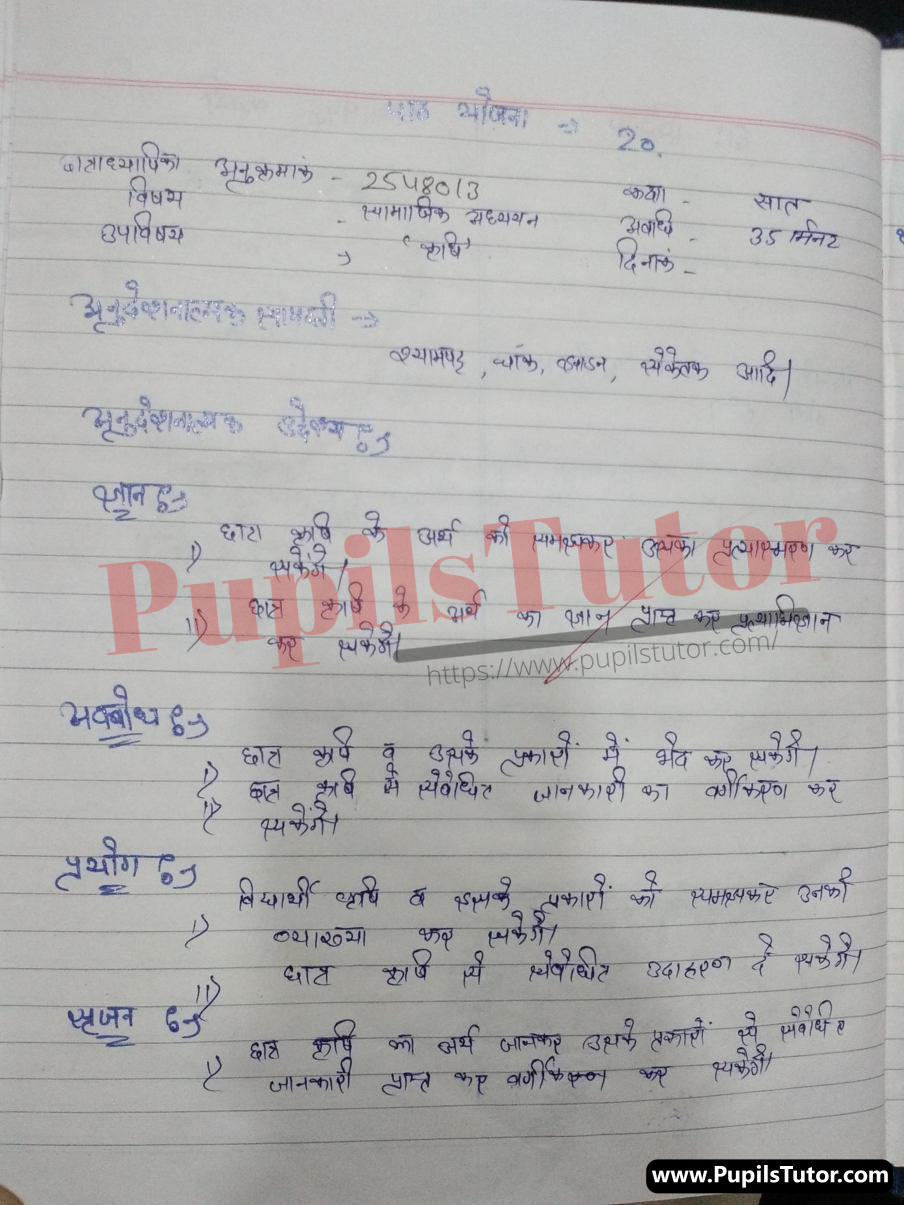 पाठ योजना → 20.
छात्राध्यापिका अनुक्रमांक - 2548013 कक्षा - सात
विषय - सामाजिक अध्ययन अवधि - 35 मिनट
उपविषय → 'कृषि' दिनांक -
अनुदेशनात्मक सामग्री →
श्यामपट्ट, चॉक, झाडन, संकेतक आदि।
अनुदेशनात्मक उद्देश्य :→
ज्ञान :→
i) छात्र कृषि के अर्थ को समझकर उसका प्रत्यास्मरण कर
सकेंगे।
ii) छात्र कृषि के अर्थ का ज्ञान प्राप्त कर प्रत्याभिज्ञान
कर सकेंगे।
PupilsTutor
https://www.pupilstutor.com/
अवबोध :→
i) छात्र कृषि व उसके प्रकारों में भेद कर सकेंगे।
ii) छात्र कृषि से संबंधित जानकारी का वर्गीकरण कर
सकेंगे।
प्रयोग :→
i) विद्यार्थी कृषि व इसके प्रकारों को समझकर उनकी
व्याख्या कर सकेंगे।
ii) छात्र कृषि से संबंधित उदाहरण दे सकेंगे।
सृजन :→
i) छात्र कृषि का अर्थ जानकर उसके प्रकारों से संबंधित
जानकारी प्राप्त कर वर्गीकरण कर सकेंगे।
www.PupilsTutor.com